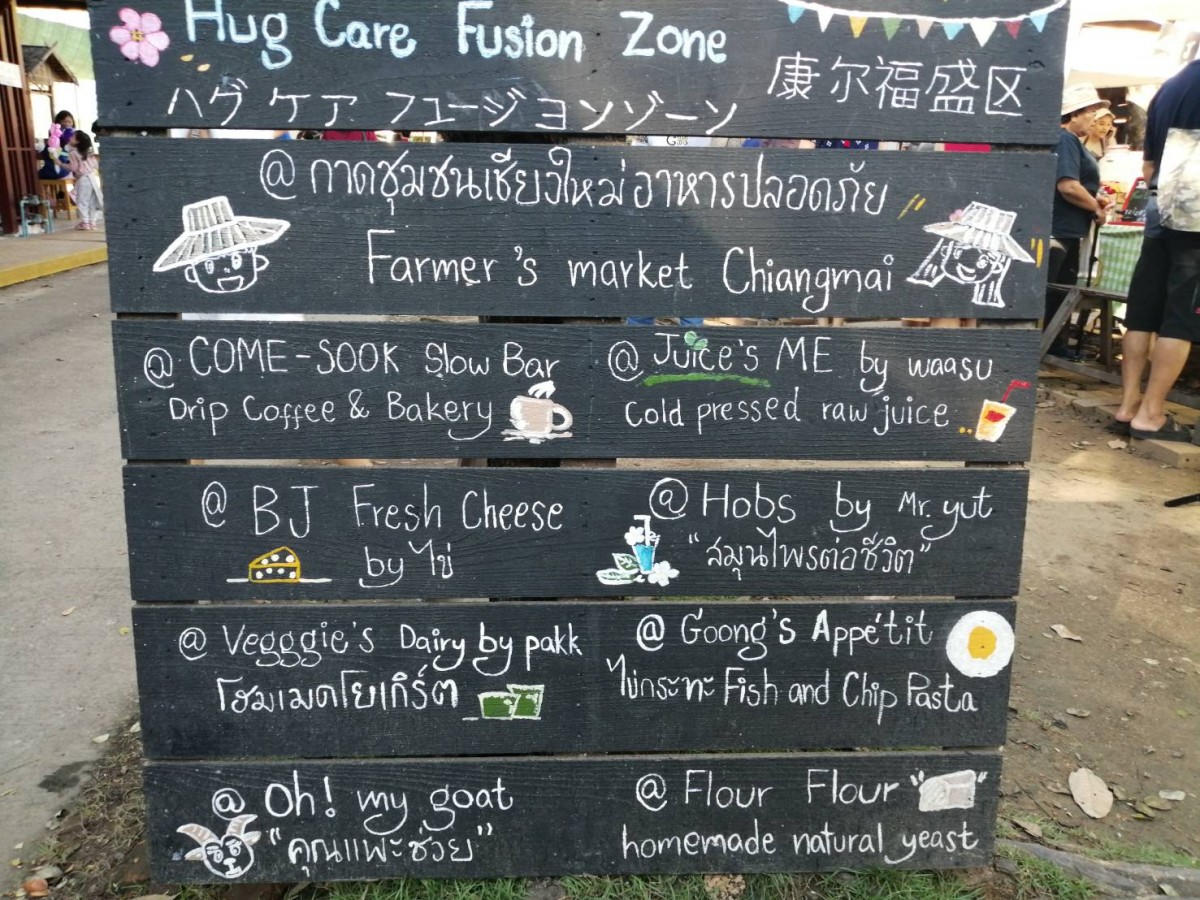 Hug Care Fusion Zone
ハグ ケア フュージョンゾーン
康尔福盛区
@ กาดชุมชนเชียงใหม่อาหารปลอดภัย
Farmer's market Chiangmai
@ COME-SOOK Slow Bar
Drip Coffee & Bakery
@ Juice's ME by waasu
Cold pressed raw juice
@ BJ Fresh Cheese
by ไข่
@ Hobs by Mr. yut
"สมุนไพรต่อชีวิต"
@ Vegggie's Dairy by pakk
โฮมเมดโยเกิร์ต
@ Goong's Appétit
ไข่กระทะ Fish and Chip Pasta
@ Oh! my goat
"คุณแพะช่วย"
@ Flour Flour
homemade natural yeast